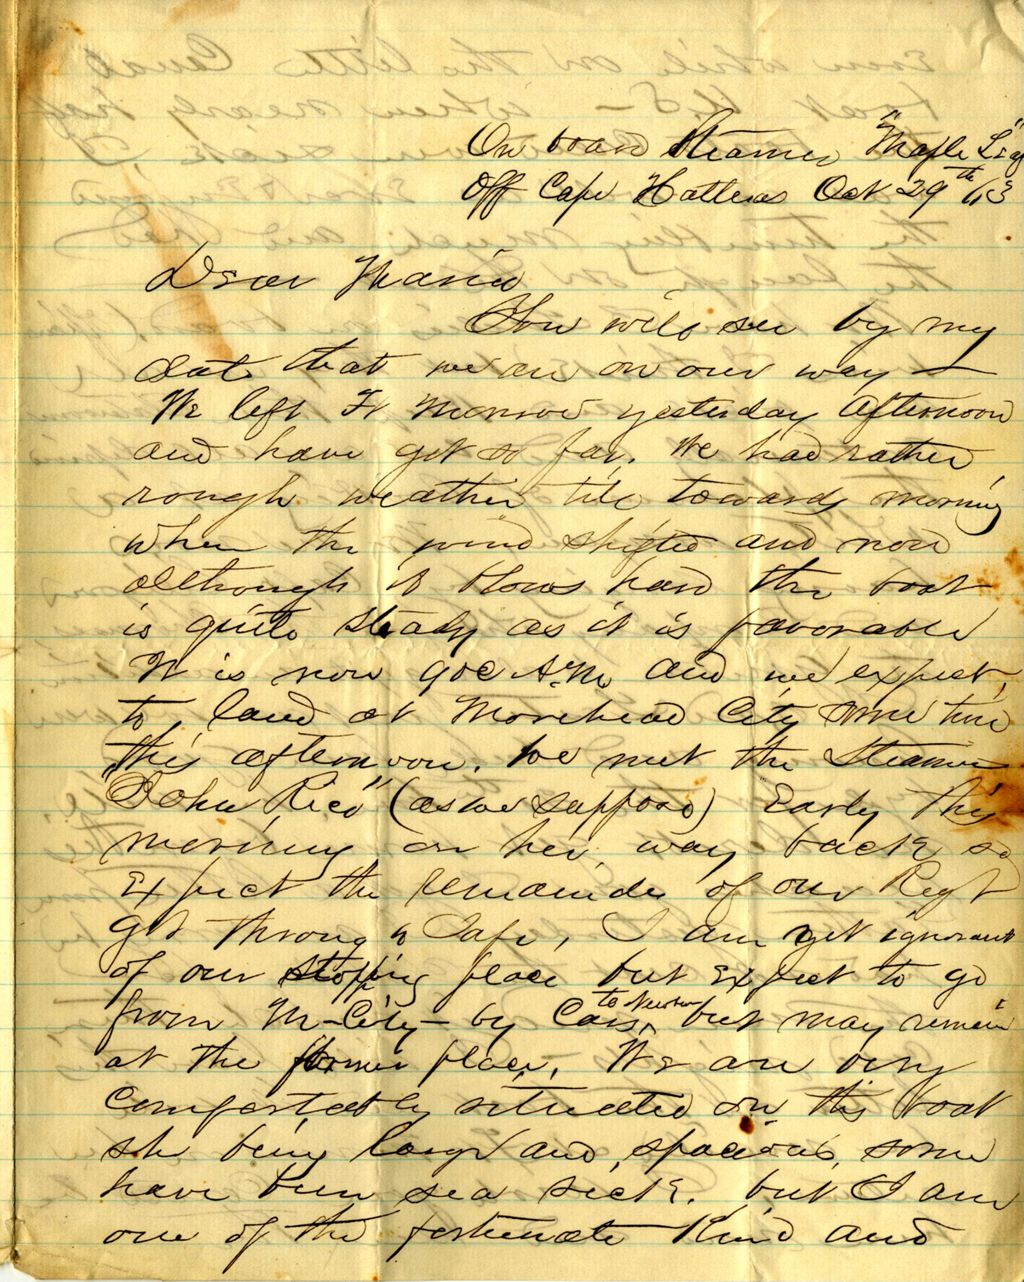 On board Steamer "Maple Leaf"
Off Cape Hatteras Oct 29th /63
Dear Maria
You will see by my
date that we are on our way —
We left Ft Monroe yesterday afternoon
and have got so far. We had rather
rough weather till towards morning
when the wind shifted and now
although it blows hard the boat
is quite steady as it is favorable
It is now 9 oc A.M. and we expect
to land at Morehead City some time
this afternoon. We met the Steamer
"John Rice" (as we suppose) Early this
morning on her way back so
Expect the remainder of our Regt
got through safe, I am yet ignorant
of our stopping place but Expect to go
from M-City- by Cars to Newbern but may remain
at the former place. We are very
Comfortably situated on this boat
she being large and spacious, some
have been sea sick. but I am
one of the fortunate kind and